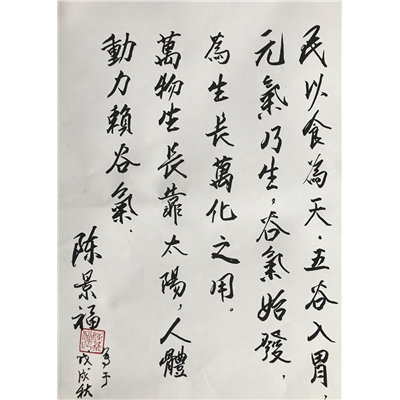 民以食為天．五谷入胃，
元氣乃生，谷氣始發，
為生長萬化之用。
萬物生長靠太陽，人體
動力賴谷氣．
陈景福
写于
戊戌秋